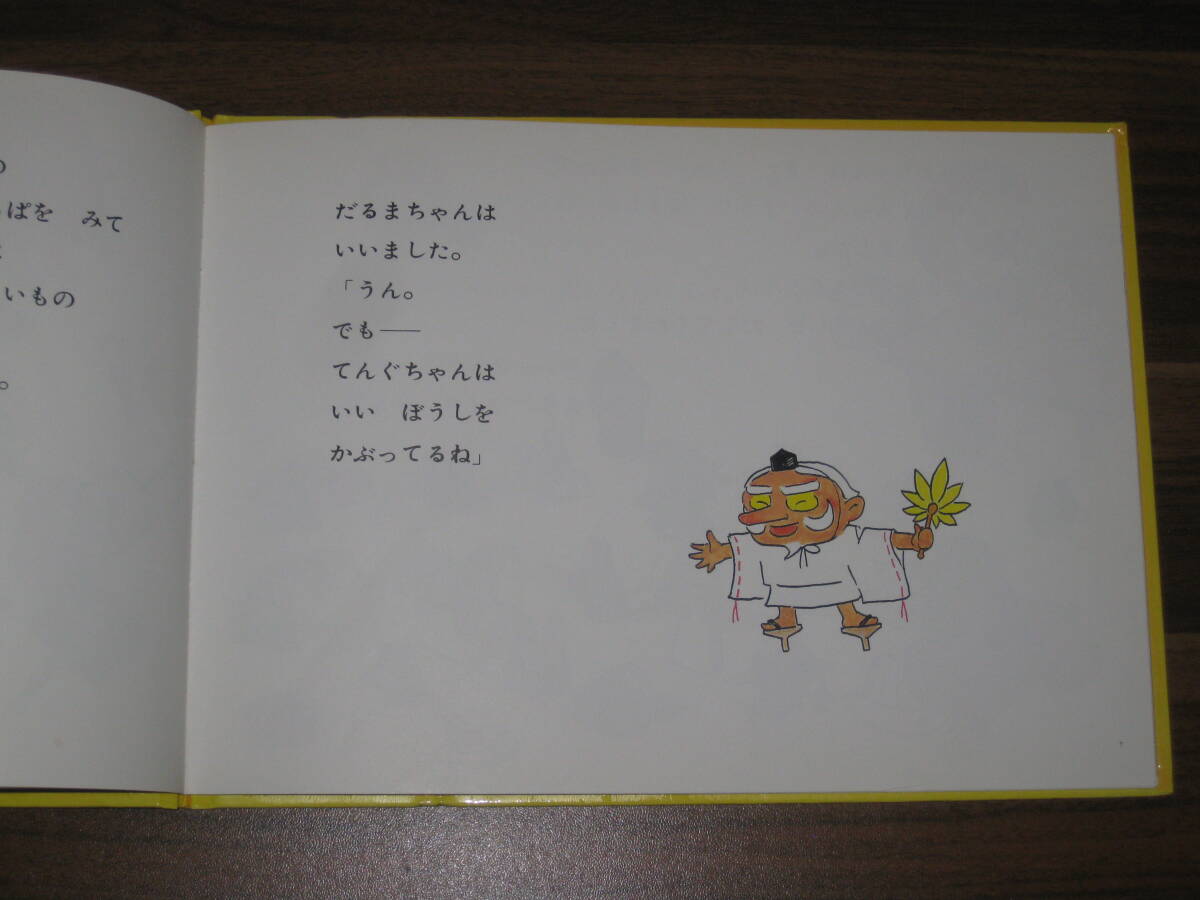 ぱを　みて
いもの
。
だるまちゃんは
いいました。
「うん。
でも――
てんぐちゃんは
いい　ぼうしを
かぶってるね」